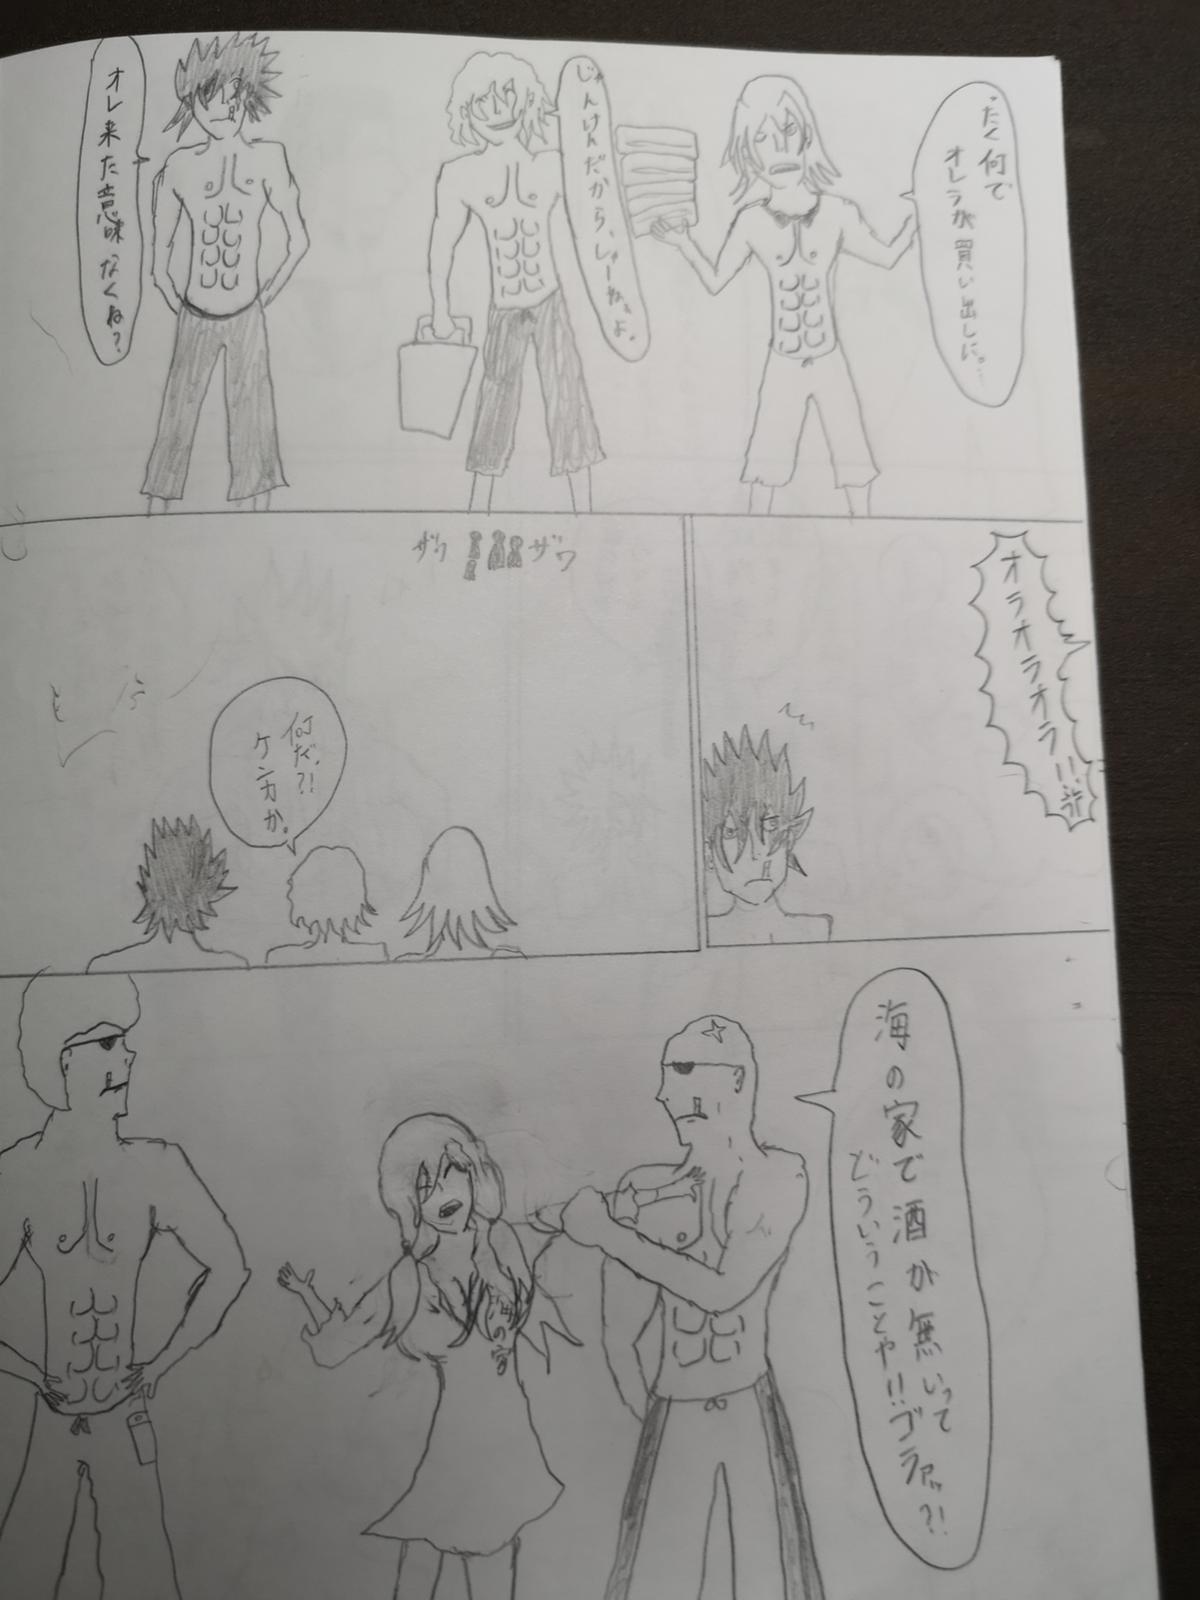 ったく何で
オレラが買い出しに。…
じゃんけんだから、しゃーねぇよ。
オレ来た意味なくね?
オラオラオラ!!
ザワ
ザワ
何だ?!
ケンカか。
海の家で酒が無いって
どういうことや!!ゴラァッ?!
の家